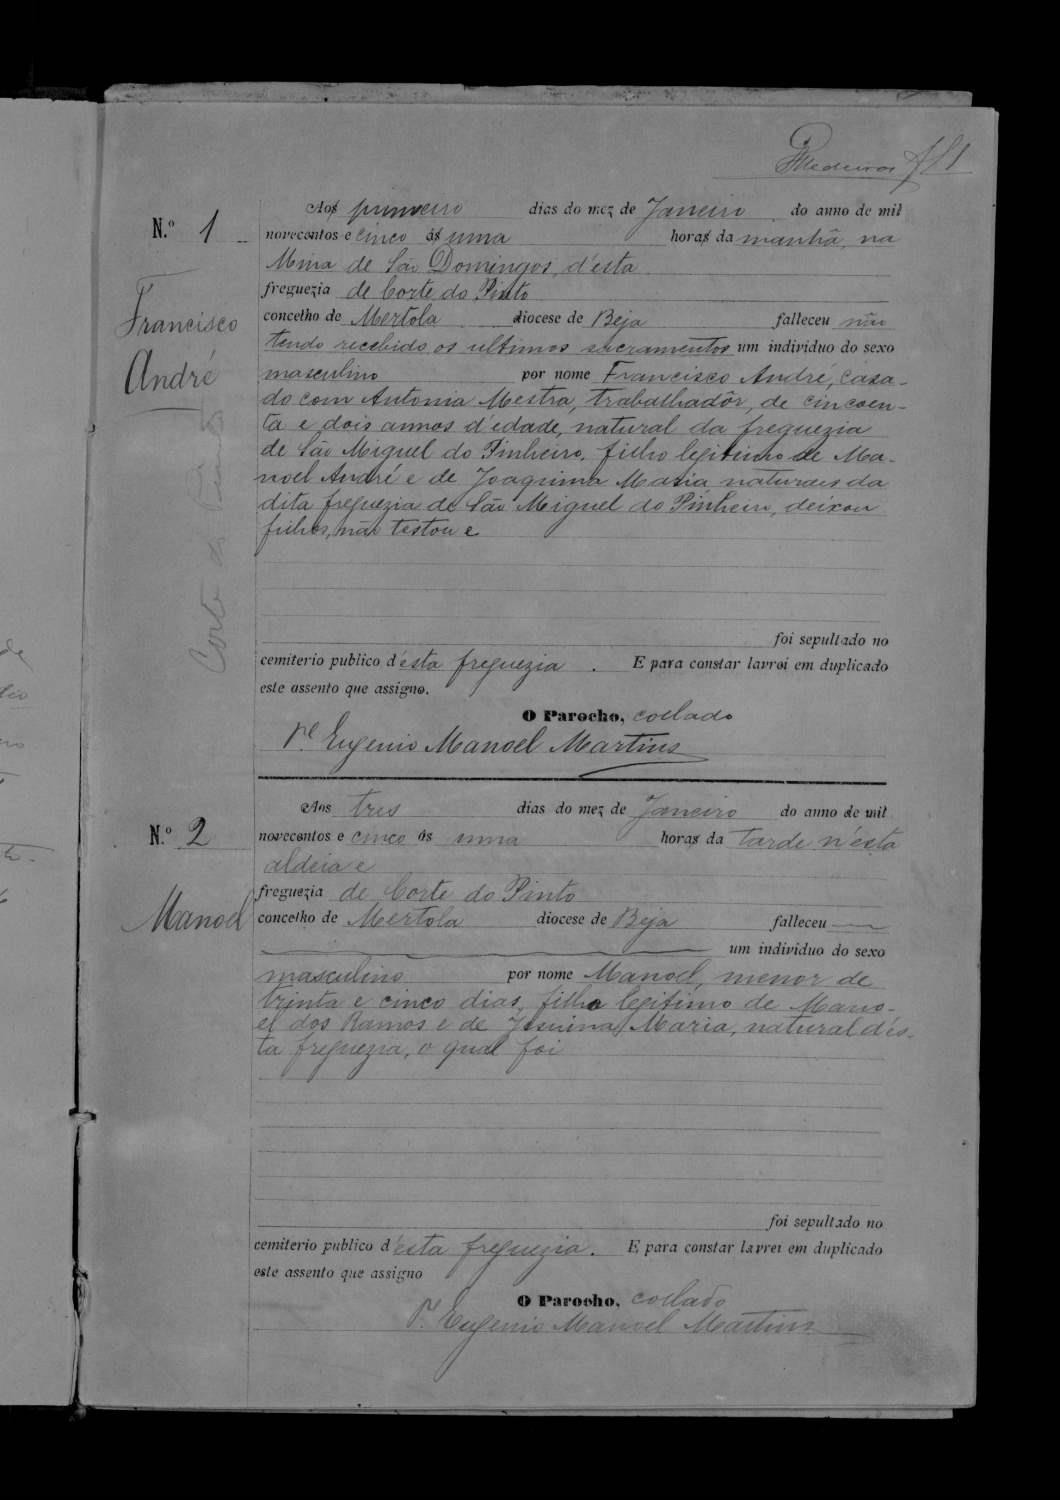 Medeiros fl 1
Aos primeiro dias do mez de Janeiro do anno de mil
N.º 1
novecentos e cinco ás uma horas da manhã, na
Mina de São Domingos, d'esta
freguezia de Corte do Pinto
concelho de Mertola diocese de Beja falleceu não
Francisco
tendo recebido os ultimos sacramentos um individuo do sexo
masculino por nome Francisco André, casa-
André
do com Antonia Mestra, trabalhadôr, de cincoen-
ta e dois annos d'edade, natural da freguezia
de São Miguel do Pinheiro, filho legitimo de Ma-
noel André e de Joaquina Maria naturaes da
dita freguezia de São Miguel do Pinheiro, deixou
filhos, não testou e
Corte do Pinto
foi sepultado no
cemiterio publico d'esta freguezia. E para constar lavrei em duplicado
este assento que assigno.
O Parocho, collado
P.e Eugenio Manoel Martins
Aos tres dias do mez de Janeiro do anno de mil
N.º 2
novecentos e cinco ás uma horas da tarde n'esta
aldeia e
freguezia de Corte do Pinto
Manoel
concelho de Mertola diocese de Beja falleceu
um individuo do sexo
masculino por nome Manoel, menor de
trinta e cinco dias, filho legitimo de Mano-
el dos Ramos e de Jesuina Maria, natural d'és-
ta freguezia, o qual foi
foi sepultado no
cemiterio publico d'esta freguezia. E para constar lavrei em duplicado
este assento que assigno
O Parocho, collado
P.e Eugenio Manoel Martins